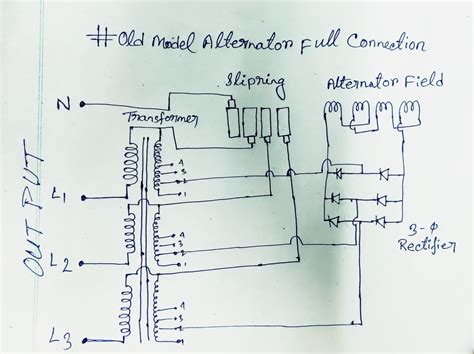 # Old Model Alternator Full Connection
Slipring
Alternator Field
N
Transformer
L1
L2
L3
OUTPUT
4
3
2
1
4
3
2
1
4
3
2
1
3-Φ
Rectifier